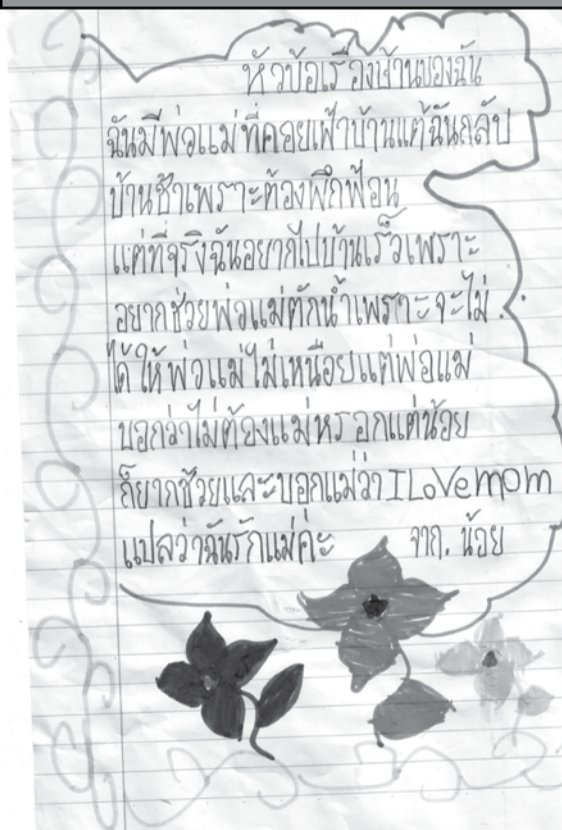 หัวข้อเรื่องบ้านของฉัน
ฉันมีพ่อแม่ที่คอยเฝ้าบ้านแต่ฉันกลับ
บ้านช้าเพราะต้องฟึกฟ้อน
แต่ที่จริงฉันอยากไปบ้านเร็วเพราะ
อยากช่วยพ่อแม่ตักน้ำเพราะจะไม่
ได้ให้พ่อแม่ไม่เหนื่อยแต่พ่อแม่
บอกว่าไม่ต้องแม่หรอกแต่น้อย
ก็ยากช่วยและบอกแม่ว่า I Love mom
แปลว่าฉันรักแม่ค่ะ จาก. น้อย